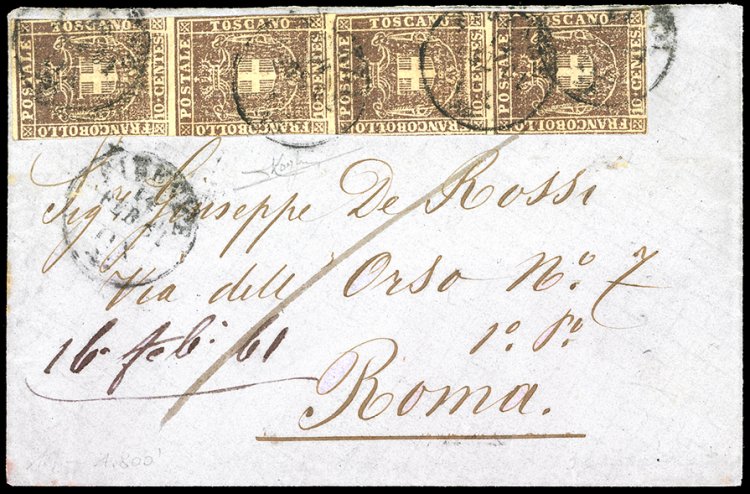 TOSCANO TOSCANO TOSCANO TOSCANO
POSTALE 10 CENTES POSTALE 10 CENTES POSTALE 10 CENTES POSTALE 10 CENTES
FRANCOBOLLO FRANCOBOLLO FRANCOBOLLO FRANCOBOLLO
FIRENZE
Sig Giuseppe De Rossi
Via dell' Orso No. 7
1o. Po.
16 Feb. 61
Roma.